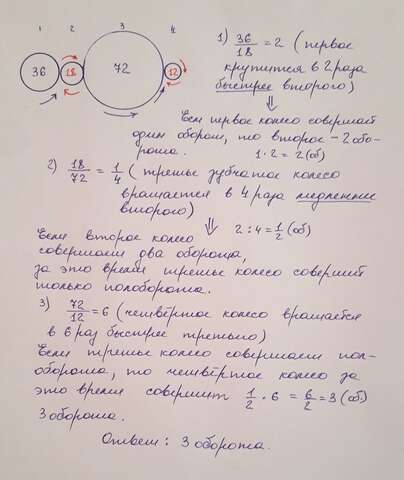 1 2 3 4
36 18 72 12
1) 36/18 = 2 (первое
крутится в 2 раза
быстрее второго)
⇓
Если первое колесо совершает
один оборот, то второе - 2 обо-
рота. 1·2 = 2 (об)
2) 18/72 = 1/4 (третье зубчатое колесо
вращается в 4 раза медленнее
второго)
⇓ 2:4 = 1/2 (об)
Если второе колесо
совершает два оборота,
за это время третье колесо совершит
только полоборота.
3) 72/12 = 6 (четвёртое колесо вращается
в 6 раз быстрее третьего)
Если третье колесо совершает пол-
оборота, то четвёртое колесо за
это время совершит 1/2 · 6 = 6/2 = 3 (об)
3 оборота.
Ответ: 3 оборота.